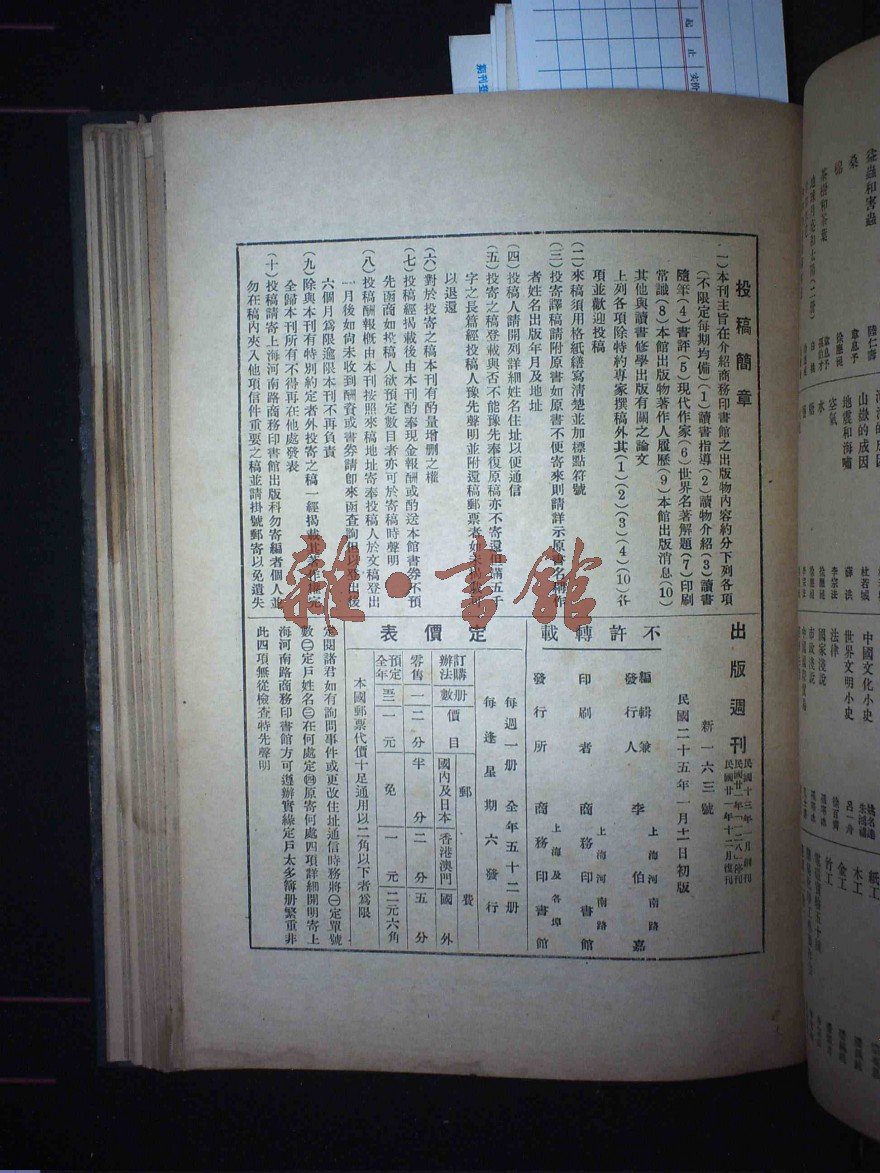 投稿簡章
(一)本刊主旨在介紹商務印書館之出版物內容約分下列各項
(不限定每期均備)(1)讀書指導(2)讀物介紹(3)讀書
隨筆(4)書評(5)現代作家(6)世界名著解題(7)印刷
常識(8)本館出版物著作人履歷(9)本館出版消息(10)
其他與讀書修學出版有關之論文
上列各項除特約專家撰稿外其(1)(2)(3)(4)(10)各
項並歡迎投稿
(二)來稿須用格紙繕寫清楚並加標點符號
(三)投寄譯稿請附原書如原書不便寄來則請詳示原書名稱作
者姓名出版年月及地址
(四)投稿人請開列詳細姓名住址以便通信
(五)投寄之稿登載與否不能豫先奉復原稿亦不寄還但滿五千
字之長篇經投稿人豫先聲明並附還稿郵票者如未揭載可
以退還
(六)對於投寄之稿本刊有酌量增刪之權
(七)投稿經揭載後由本刊酌奉現金報酬或酌送本館書券不預
先函商如投稿人欲預定數目者亦可於寄稿時聲明
(八)投稿酬報概由本刊按照來稿地址寄奉投稿人於文稿登出
一月後如尚未收到酬資或書券請即來函查詢但以登出後
六個月為限逾限本刊不再負責
(九)除與本刊有特別約定者外投寄之稿一經揭載其著作權完
全歸本刊所有不得再在他處發表
(十)投稿請寄上海河南路商務印書館出版科勿寄編者個人並
勿在稿內夾入他項信件重要之稿並請掛號郵寄以免遺失
出版週刊
民國十三年一月創刊
民國廿一年「一二八」停刊
民國廿一年十二月復刊
新一六三號
民國二十五年一月十一日初版
不許轉載
編輯兼
發行人 李伯嘉
上海河南路
印刷者 商務印書館
上海河南路
發行所 商務印書館
上海及各埠
定價表
每週一册 全年五十二册
每逢星期六發行
訂購辦法 册數 價目 郵費
國內及日本 香港澳門 國外
零售 一 二分 半分 二分 五分
預定全年 五二 一元 免 一元 二元六角
本國郵票代價十足通用以二角以下者為限
定閱諸君如有詢問事件或更改住址通信時務將㊀定單號
數㊁定戶姓名㊂在何處定㊃原寄何處四項詳細開明寄上
海河南路商務印書館方可遵辦實緣定戶太多簿册繁重非
此四項無從檢查特先聲明
雜·書館
起 止
蠶蟲和害蟲
桑
棉
茶樹和茶葉
山嶽的成因
地震和海嘯
空氣
水
中國文化小史
世界文明小史
法律
國家淺說
市政淺說
紙工
木工
金工
竹工